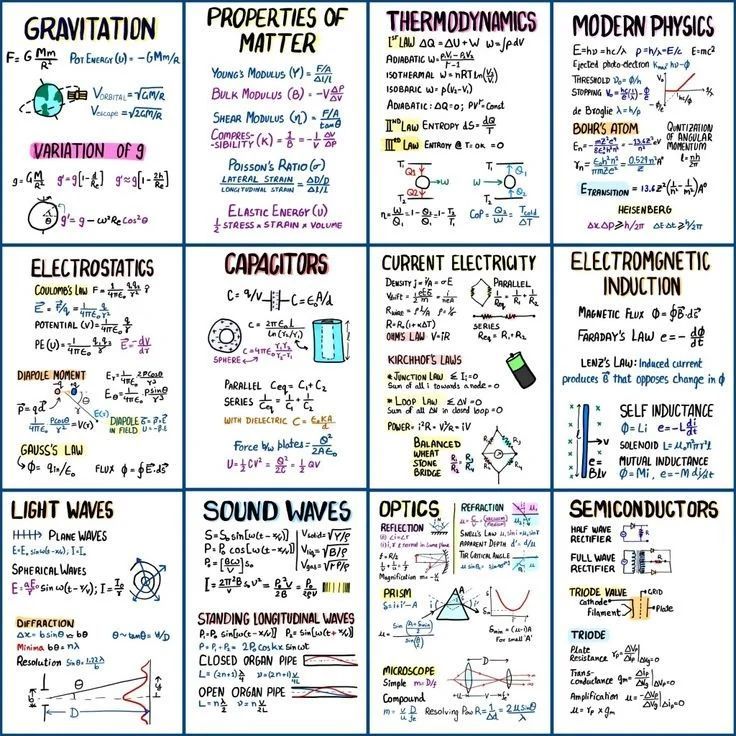 GRAVITATION
F = G Mm/R² POT ENERGY (U) = -GMm/R
VORBITAL = √GM/R
Vescape = √2GM/R
VARIATION OF g
g = GM/R² g' = g[1 - d/Re] g' ≈ g[1 - 2h/Re]
θ
g' = g - ω²Re cos²θ
PROPERTIES OF
MATTER
YOUNG'S MODULUS (Y) = F/A / Δl/l
BULK MODULUS (B) = -V ΔP/ΔV
SHEAR MODULUS (η) = F/A / tanθ
COMPRES-
SIBILITY (K) = 1/B = -1/V ΔV/ΔP
POISSON'S RATIO (σ)
LATERAL STRAIN / LONGITUDINAL STRAIN = ΔD/D / Δl/l
ELASTIC ENERGY (U)
1/2 STRESS × STRAIN × VOLUME
THERMODYNAMICS
Ist LAW ΔQ = ΔU + W W = ∫pdV
ADIABATIC W = P₁V₁ - P₂V₂ / γ-1
ISOTHERMAL W = nRT ln(V₂/V₁)
ISOBARIC W = P(V₂-V₁)
ADIABATIC: ΔQ = 0; PVʳ = Const
IInd LAW ENTROPY dS = dQ/T
IIIrd LAW ENTROPY @ T=0K = 0
T₁ T₁
Q1 Q1
W W
Q2 Q2
T₂ T₂
η = W/Q₁ = 1 - Q₂/Q₁ = 1 - T₂/T₁ COP = Q₂/W = Tcold/ΔT
MODERN PHYSICS
E = hν = hc/λ p = h/λ = E/c E = mc²
Ejected photo-electron Kmax = hν - φ
THRESHOLD ν₀ = φ/h
STOPPING V₀ = hc/e(1/λ) - φ/e
de Broglie λ = h/p
BOHR'S ATOM
QUNTIZATION
OF ANGULAR
MOMENTUM
L = nh/2π
ETRANSITION = 13.6Z²(1/n² - 1/m²)A⁰
HEISENBERG
Δx Δp ≥ h/2π ΔE Δt ≥ h/2π
ELECTROSTATICS
COULOMB'S LAW F = 1/4πε₀ q₁q₂/r² r̂
POTENTIAL (V) = 1/4πε₀ q/r
PE (U) = 1/4πε₀ q₁q₂/r E = -dV/dr
DIAPOLE MOMENT
Er = 1/4πε₀ 2Pcosθ/r³
Eθ = 1/4πε₀ psinθ/r³
1/4πε₀ Pcosθ/r² = V(r)
DIAPOLE
IN FIELD
GAUSS'S LAW
φ = qin/ε₀ FLUX φ = ∮E⃗·ds⃗
CAPACITORS
C = q/V C = ε₀A/d
C = 2πε₀L / ln(r₂/r₁)
SPHERE → C = 4πε₀ r₁r₂/r₂-r₁
PARALLEL Ceq = C₁ + C₂
SERIES 1/Ceq = 1/C₁ + 1/C₂
WITH DIELECTRIC C = ε₀KA/d
Force b/w plates = Q²/2Aε₀
U = 1/2 CV² = Q²/2C = 1/2 QV
CURRENT ELECTRICITY
DENSITY j = i/A = σE
Rwire = ρl/A
R = R₀(1+αΔT)
OHM'S LAW V = iR
PARALLEL
1/Req = 1/R₁ + 1/R₂
SERIES
Req = R₁ + R₂
KIRCHHOF'S LAWS
* JUNCTION LAW ≤ Iᵢ = 0
Sum of all i towards a node = 0
* LOOP LAW ≤ ΔV = 0
Sum of all ΔV in closed loop = 0
POWER = i²R = V²/R = iV
BALANCED
WHEAT
STONE
BRIDGE
R₁/R₂ = R₃/R₄
ELECTROMGNETIC
INDUCTION
MAGNETIC FLUX φ = ∮B⃗·ds⃗
FARADAY'S LAW e = -dφ/dt
LENZ'S LAW: Induced current
produces B⃗ that opposes change in φ
SELF INDUCTANCE
φ = Li e = -L di/dt
SOLENOID L = μ₀n²πr²l
MUTUAL INDUCTANCE
φ = Mi, e = -M di/dt
l
v
e=
Blv
LIGHT WAVES
PLANE WAVES
SPHERICAL WAVES
DIFFRACTION
Δx = bsinθ ≈ bθ θ ~ tanθ = Y/D
Minima bθ = nλ
Resolution sinθ = 1.22λ/b
θ
D
SOUND WAVES
S = S₀ sin[ω(t-x/v)]
P = P₀ cos[ω(t-x/v)]
P₀ = [Bω/v]S₀
Vsolid = √Y/ρ
Vliq = √B/ρ
Vgas = √γP/ρ
I = 2π²B/v S₀²ν² = P₀²v/2B = P₀²/2ρv
STANDING LONGITUDINAL WAVES
P₁ = P₀ sin[ω(t-x/v)] P₂ = P₀ sin[ω(t+x/v)]
P = P₁ + P₂ = 2P₀ coskx sinωt
CLOSED ORGAN PIPE
L = (2n+1)λ/4 ν = (2n+1)V/4L
OPEN ORGAN PIPE
L = nλ/2 ν = nV/2L
OPTICS
REFLECTION
(i) ∠i = ∠r
(ii) i, r & normal in same plane
f = R/2
1/v + 1/u = 1/f
Magnification m = -v/u
REFRACTION
SNELL'S LAW
APPARENT DEPTH d' = d/μ
TIR CRITICAL ANGLE
PRISM
δ = i + i' - A
A
δm = (μ-1)A
for small 'A'
MICROSCOPE
Simple m = D/f
Compound
m = v/u D/fe Resolving Pow R = 1/Δd = 2μsinθ/λ
D
SEMICONDUCTORS
HALF WAVE
RECTIFIER
FULL WAVE
RECTIFIER
TRIODE VALVE
GRID
Cathode
Filament
Plate
TRIODE
Plate
Resistance rp = ΔVp/Δip |ΔVg=0
Trans-
conductance gm = Δip/ΔVg |ΔVp=0
Amplification μ = -ΔVp/ΔVg |Δip=0
μ = rp × gm